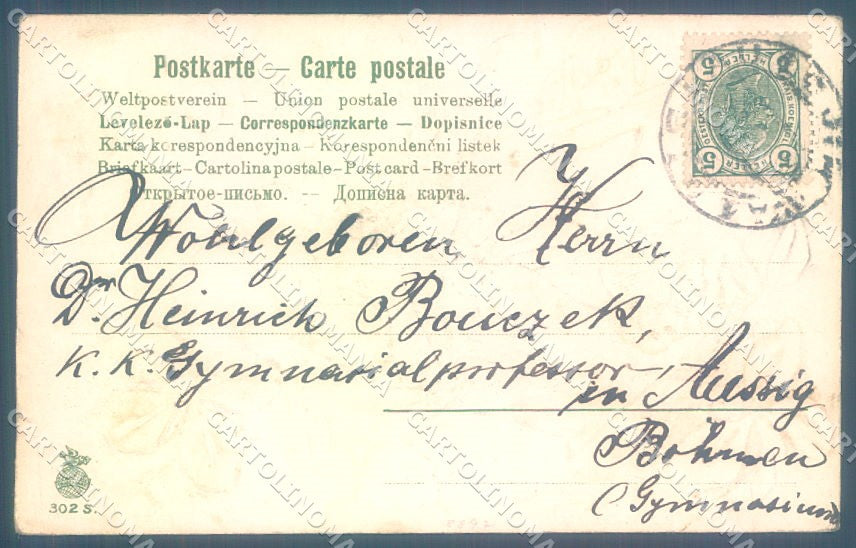 Postkarte — Carte postale
Weltpostverein — Union postale universelle
Levelező-Lap — Correspondenzkarte — Dopisnice
Karta korespondencyjna — Korespondenčni listek
Briefkaart - Cartolina postale - Post card - Brefkort
Открытое-письмо. -- Дописна карта.
Wohlgeboren Herrn
Dr Heinrich Bouczek,
K. K. Gymnasialprofessor
in Aussig
Böhmen
(Gymnasium
302 S.
5 5
5 5
CARTOLINOMANIA